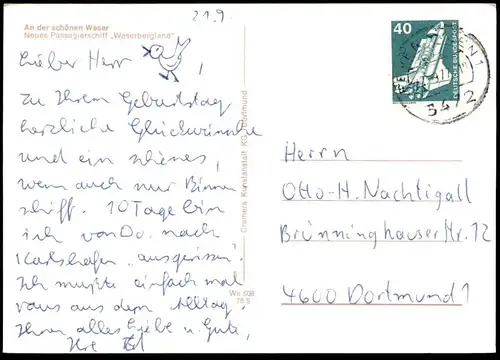 21.9
An der schönen Weser
Neues Passagierschiff „Weserbergland"
Lieber Herr
zu Ihrem Geburtstag
herzliche Glückwünsche
und ein schönes,
wenn auch nur Binnen
schiff. 10 Tage bin
ich von Do. nach
Karlshafen „ausgerissen".
Ich mußte einfach mal
raus aus dem Alltag.
Ihnen alles Liebe u. Gute,
Ihre
Cramers Kunstanstalt KG, Dortmund
We 608
40
DEUTSCHE BUNDESPOST
3472
Herrn
Otto-H. Nachtigall
Brünninghauser Str. 12
4600 Dortmund 1